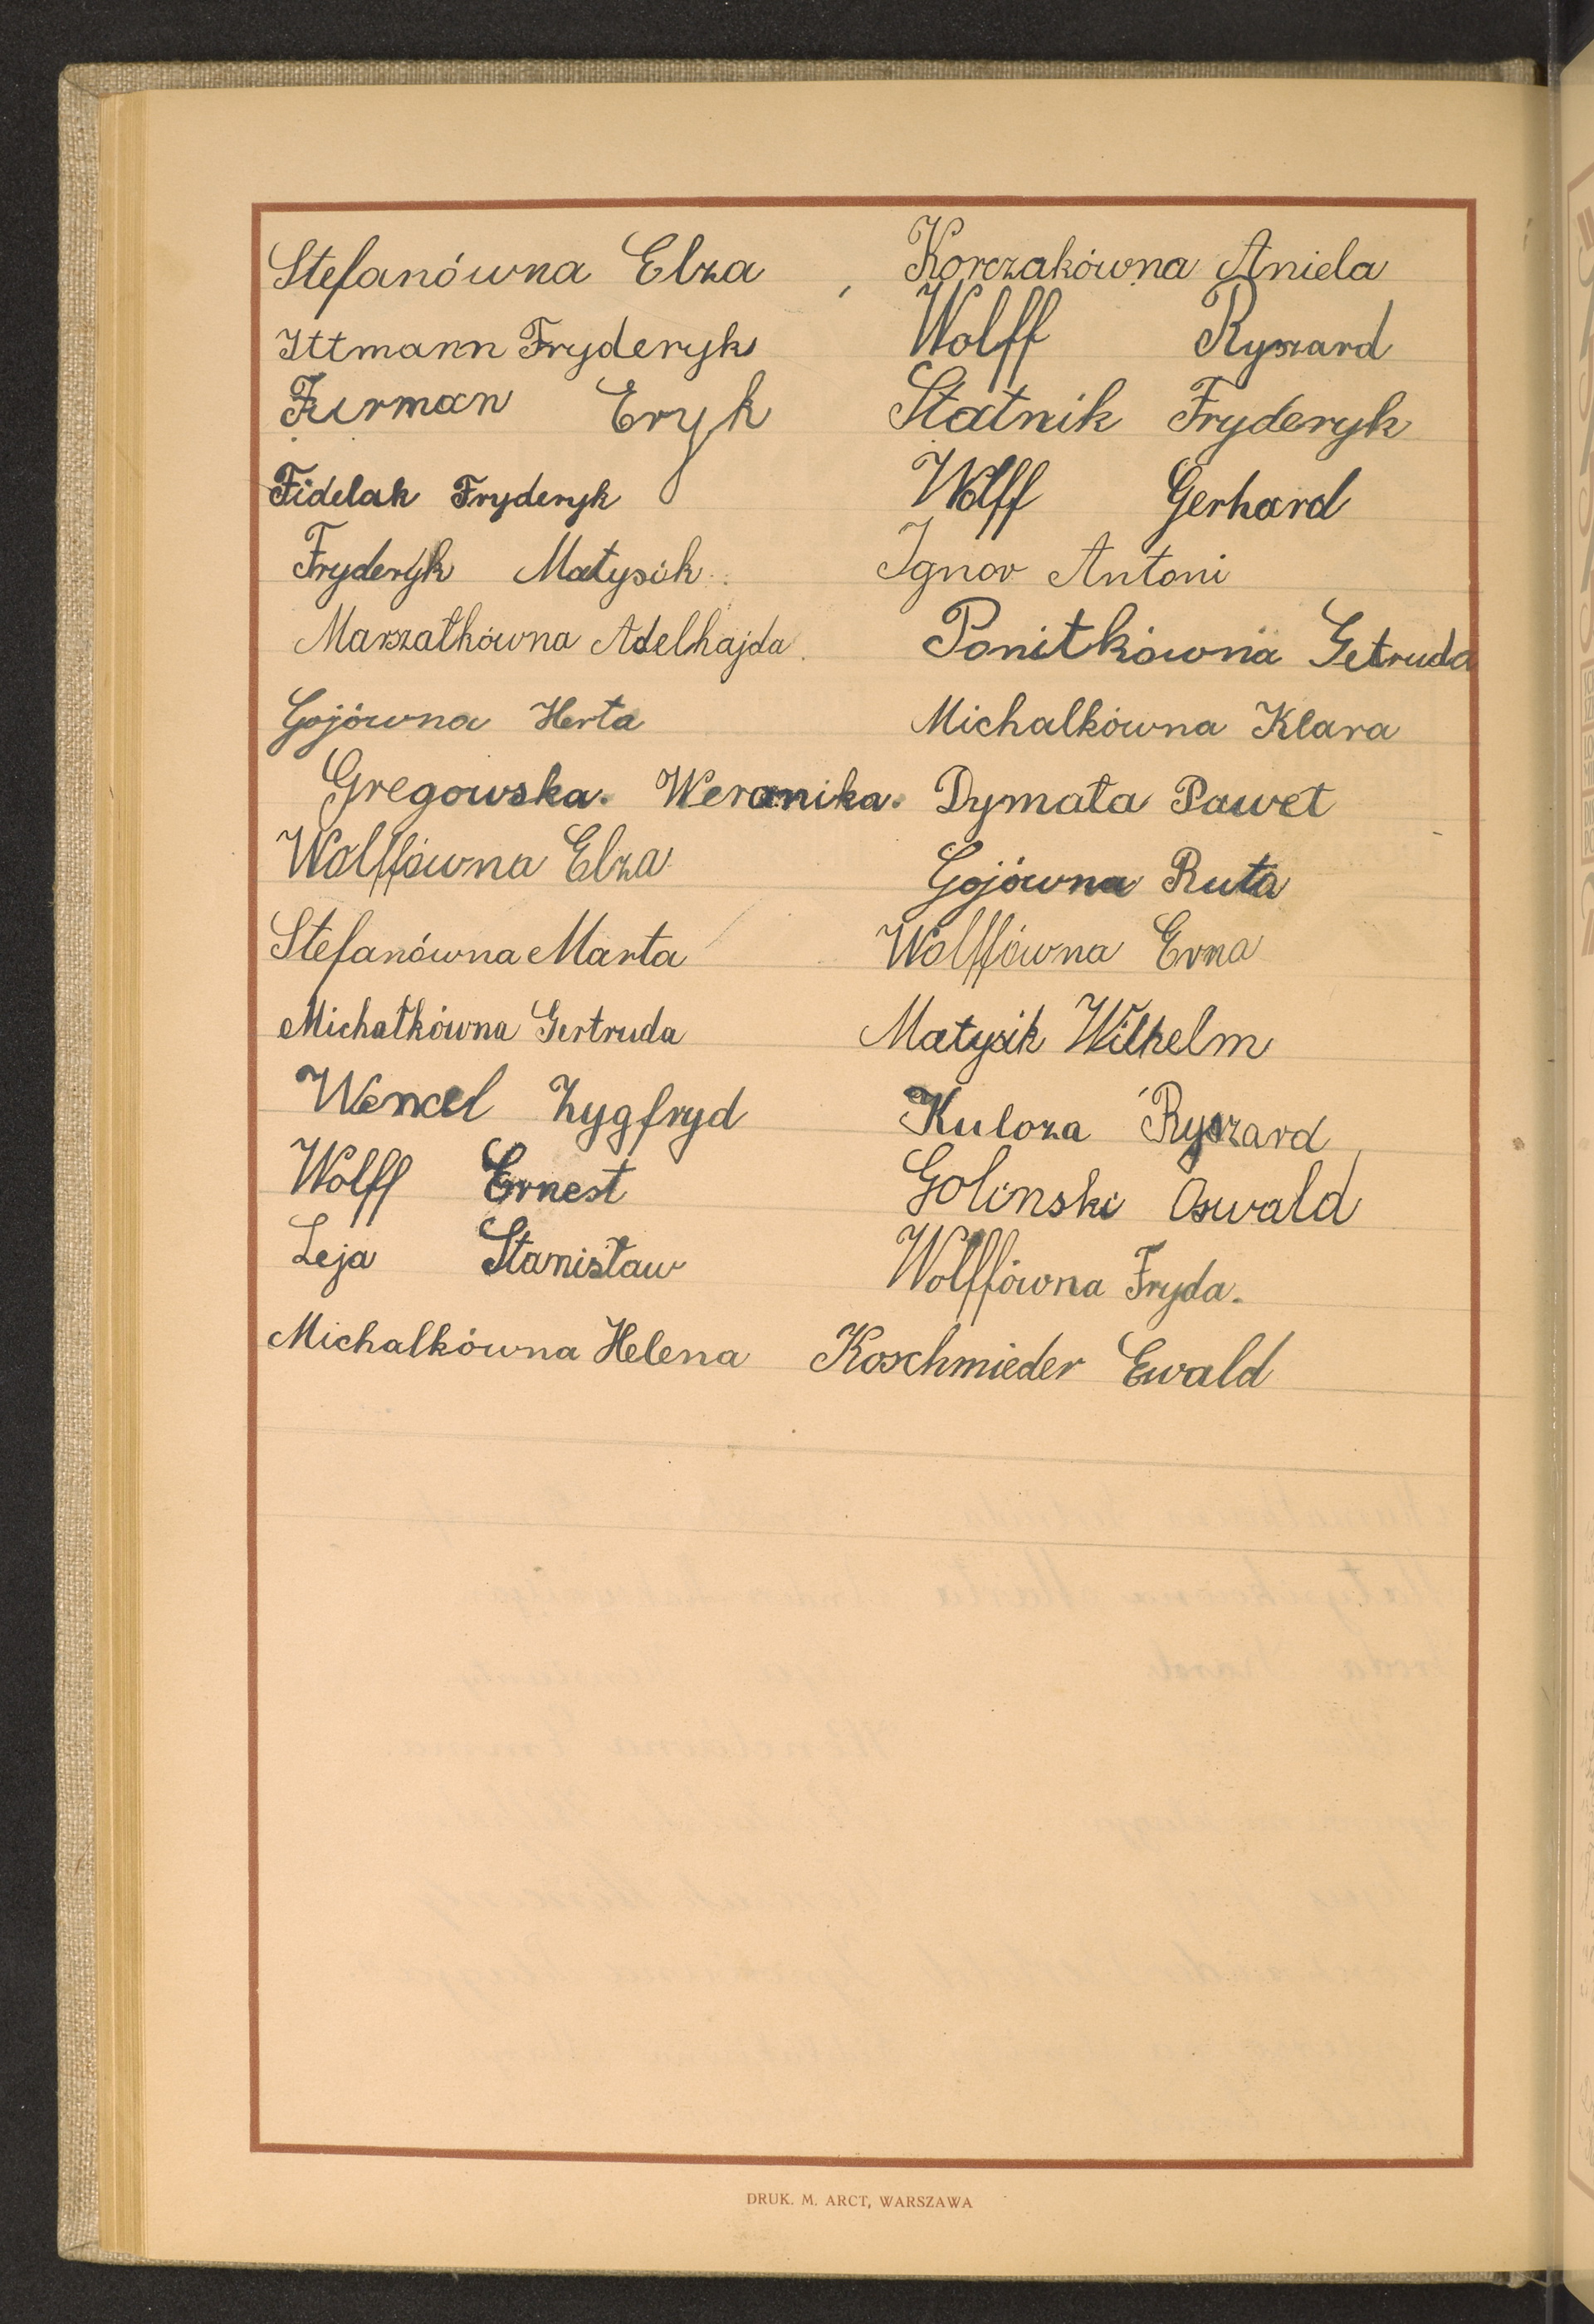 Stefanówna Elza
Ittmann Fryderyk
Furman Eryk
Fidelak Fryderyk
Fryderyk Matysik
Marszałkówna Adelhajda.
Gojówna Herta
Gregowska. Weronika.
Wolffówna Elza
Stefanówna Marta
Michałkówna Gertruda
Wencel Zygfryd
Wolff Ernest
Leja Stanisław
Michalkówna Helena
Korczakówna Aniela
Wolff Ryszard
Statnik Fryderyk
Wolff Gerhard
Ignor Antoni
Ponitkówna Getruda
Michalkówna Klara
Dymała Paweł
Gojówna Ruta
Wolffówna Erna
Matysik Wilhelm
Kuloza Ryszard
Golinski Oswald
Wolffówna Fryda.
Koschmieder Ewald
DRUK. M. ARCT, WARSZAWA